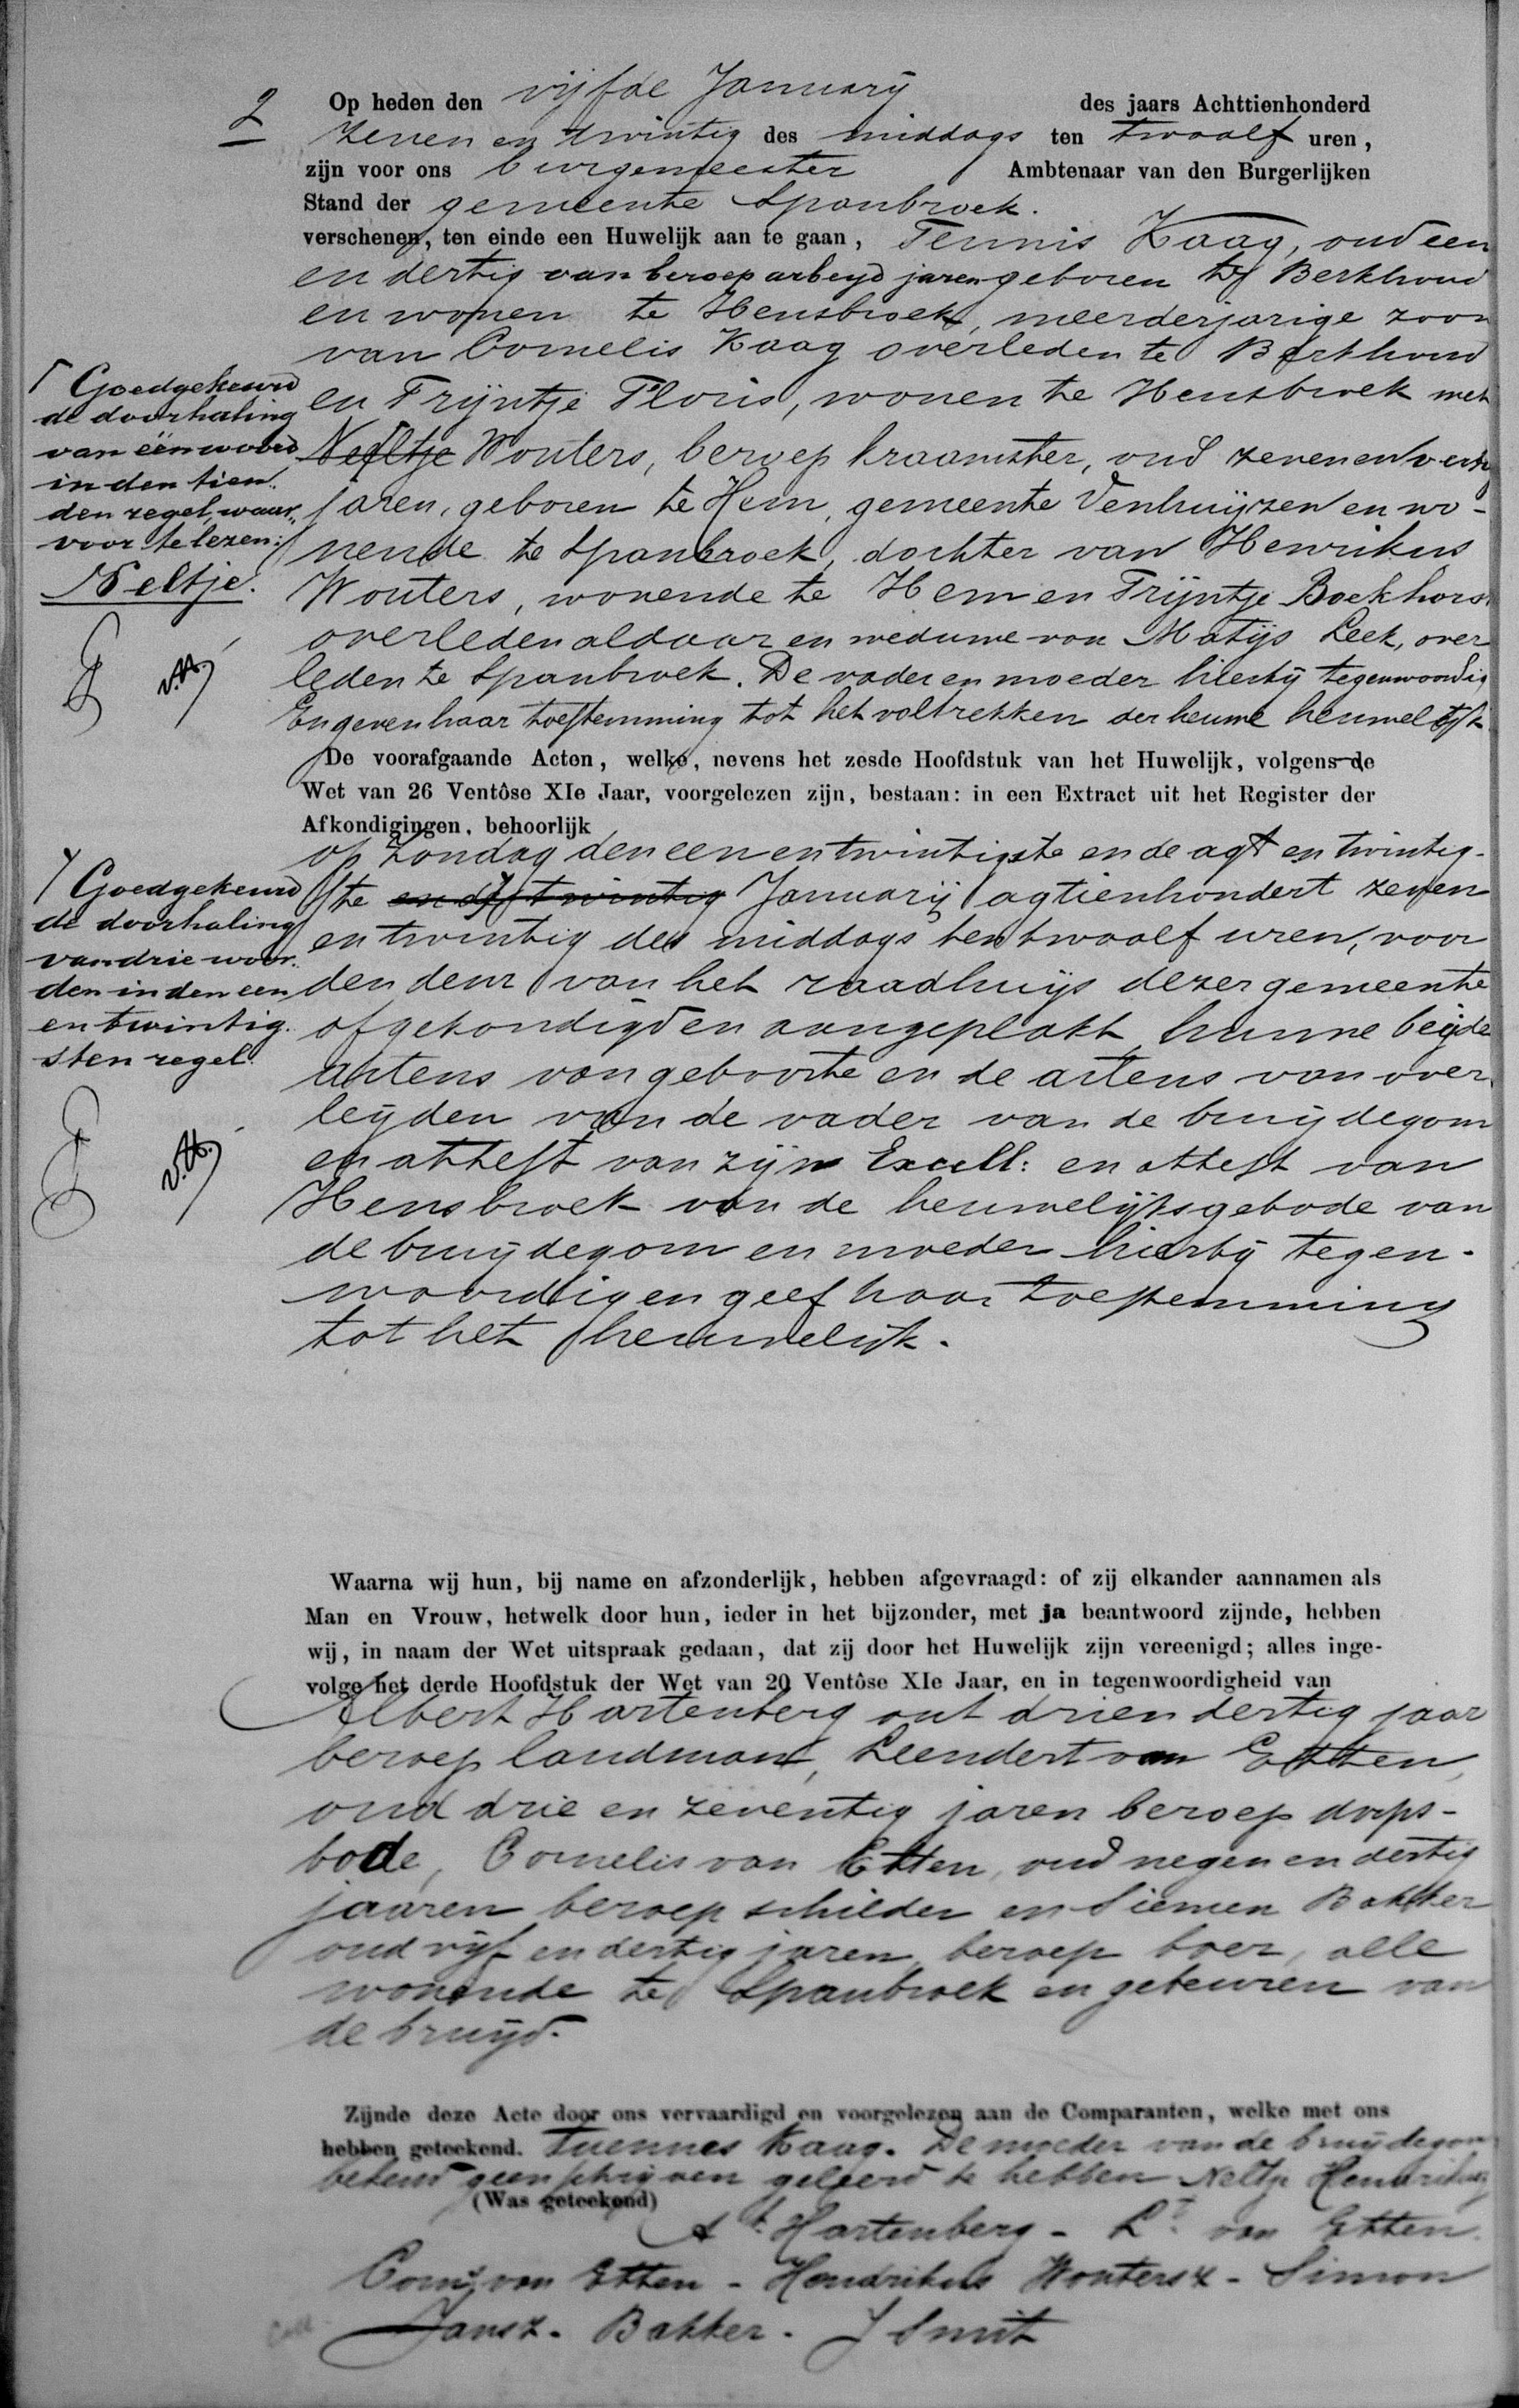 2
Op heden den vijfde Januarij des jaars Achttienhonderd
zeven en twintig des middags ten twaalf uren,
zijn voor ons burgemeester Ambtenaar van den Burgerlijken
Stand der gemeente Spanbroek.
verschenen, ten einde een Huwelijk aan te gaan, Teunis Kaag, oud een
en dertig van beroep arbeyd jaren geboren te Berkhoud
en wonen te Hensbroek, meerderjarige zoon
van Cornelis Kaag overleden te Berkhoud
en Trijntje Floris, wonen te Hensbroek met
Neeltje Wouters, beroep kraamster, oud zeven en veertig
jaren, geboren te Hem, gemeente Venhuijzen en wo-
nende te Spanbroek, dochter van Henrikus
Wouters, wonende te Hem en Trijntje Boekhorst
overleden aldaar en weduwe van Matijs Leek, over
leden te Spanbroek. De vader en moeder hierbij tegenwoordig
En geven haar toestemming tot het voltrekken der heuwe heuwelijk
Goedgekeurd
de doorhaling
van één woord
in den tien
den regel, waar
voor te lezen:
Neltje.
De voorafgaande Acten, welke, nevens het zesde Hoofdstuk van het Huwelijk, volgens de
Wet van 26 Ventôse XIe Jaar, voorgelezen zijn, bestaan: in een Extract uit het Register der
Afkondigingen, behoorlijk
op Zondag den een en twintigste en de agt en twintig-
ste en agt twintig Januarij agtienhondert zeven
en twintig des middags ten twaalf uren, voor
den deur van het raadhuijs dezer gemeente
afgekondigd en aangeplakt hunne beijde
aktens van geboorte en de actens van over
leijden van de vader van de bruijdegom
en attest van zijn Excell: en attest van
Hensbroek van de heuwelijksgebode van
de bruijdegom en moeder hierbij tegen-
woordig en geef haar toestemming
tot het heuwelijk.
Goedgekeurd
de doorhaling
van drie woor
den in den een
en twintig.
sten regel.
Waarna wij hun, bij name en afzonderlijk, hebben afgevraagd: of zij elkander aannamen als
Man en Vrouw, hetwelk door hun, ieder in het bijzonder, met ja beantwoord zijnde, hebben
wij, in naam der Wet uitspraak gedaan, dat zij door het Huwelijk zijn vereenigd; alles inge-
volge het derde Hoofdstuk der Wet van 20 Ventôse XIe Jaar, en in tegenwoordigheid van
Albert Hartenberg out drien dertig jaar
beroep landman, Leendert van Etten,
oud drie en zeventig jaren beroep dorps-
bode, Cornelis van Etten, oud negen en dertig
jaaren beroep schilder en Siemen Bakker
oud vijf en dertig jaren beroep boer, alle
wonende te Spanbroek en gebeuren van
de bruijd.
Zijnde deze Acte door ons vervaardigd en voorgelezen aan de Comparanten, welke met ons
hebben geteekend. Tuennes Kaag. De moeder van de bruijdegom
bekend geen schrijven geleerd te hebben Neltje Hendrikus
(Was geteekend)
At Hartenberg - Lt van Etten.
Corns van Etten - Hendrikus Woutersz - Simon
Jansz. Bakker. J Smit